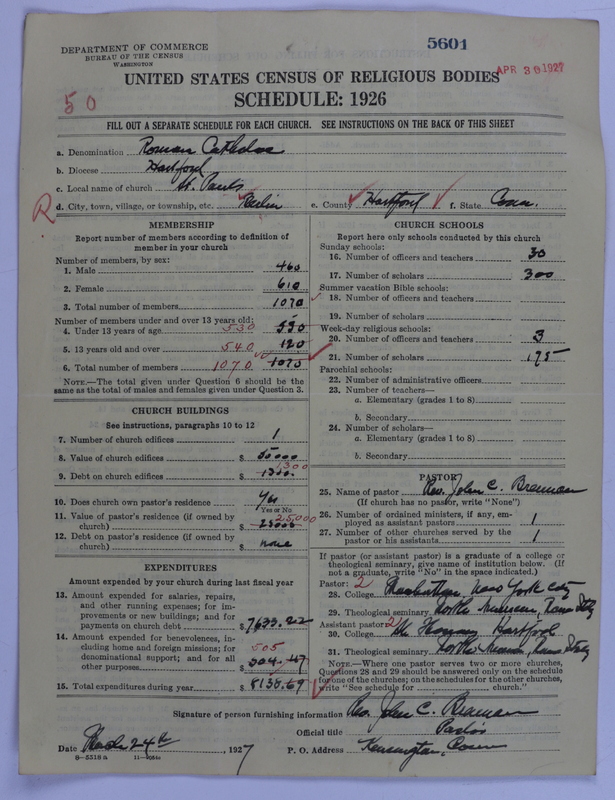 DEPARTMENT OF COMMERCE
BUREAU OF THE CENSUS
WASHINGTON
5601
APR 30 1927
UNITED STATES CENSUS OF RELIGIOUS BODIES
SCHEDULE: 1926
50
FILL OUT A SEPARATE SCHEDULE FOR EACH CHURCH. SEE INSTRUCTIONS ON THE BACK OF THIS SHEET
a. Denomination Roman Catholic
b. Diocese Hartford
c. Local name of church St. Pauls
R d. City, town, village, or township, etc. Berlin e. County Hartford f. State Conn.
MEMBERSHIP
Report number of members according to definition of member in your church
Number of members, by sex:
1. Male 460
2. Female 610
3. Total number of members 1070
Number of members under and over 13 years old:
4. Under 13 years of age 530
5. 13 years old and over 540 120
6. Total number of members 1070 1075
NOTE.—The total given under Question 6 should be the same as the total of males and females given under Question 3.
CHURCH BUILDINGS
See instructions, paragraphs 10 to 12
7. Number of church edifices 1
8. Value of church edifices $
9. Debt on church edifices $ 1300
10. Does church own pastor's residence Yes
Yes or No
11. Value of pastor's residence (if owned by church) $ 25000
12. Debt on pastor's residence (if owned by church) $ none
EXPENDITURES
Amount expended by your church during last fiscal year
13. Amount expended for salaries, repairs, and other running expenses; for improvements or new buildings; and for payments on church debt $ 7633.22
14. Amount expended for benevolences, including home and foreign missions; for denominational support; and for all other purposes $ 505 504.47
15. Total expenditures during year $ 8138.69
CHURCH SCHOOLS
Report here only schools conducted by this church
Sunday schools:
16. Number of officers and teachers 30
17. Number of scholars 300
Summer vacation Bible schools:
18. Number of officers and teachers
19. Number of scholars
Week-day religious schools:
20. Number of officers and teachers 3
21. Number of scholars 175
Parochial schools:
22. Number of administrative officers
23. Number of teachers—
a. Elementary (grades 1 to 8)
b. Secondary
24. Number of scholars—
a. Elementary (grades 1 to 8)
b. Secondary
PASTOR
25. Name of pastor Rev. John C. Brennan
(If church has no pastor, write "None")
26. Number of ordained ministers, if any, employed as assistant pastors 1
27. Number of other churches served by the pastor or his assistants 1
If pastor (or assistant pastor) is a graduate of a college or theological seminary, give name of institution below. (If not a graduate, write "No" in the space indicated.)
Pastor: 2
28. College Manhattan, New York City
29. Theological seminary North American, Rome Italy
Assistant pastor: 2
30. College Hartford
31. Theological seminary North American, Rome Italy
NOTE.—Where one pastor serves two or more churches, Questions 28 and 29 should be answered only on the schedule for one of the churches; on the schedules for the other churches, write "See schedule for church."
Signature of person furnishing information Rev. John C. Brennan
Official title Pastor
Date March 24th, 1927 P. O. Address Kensington, Conn
8—5318a